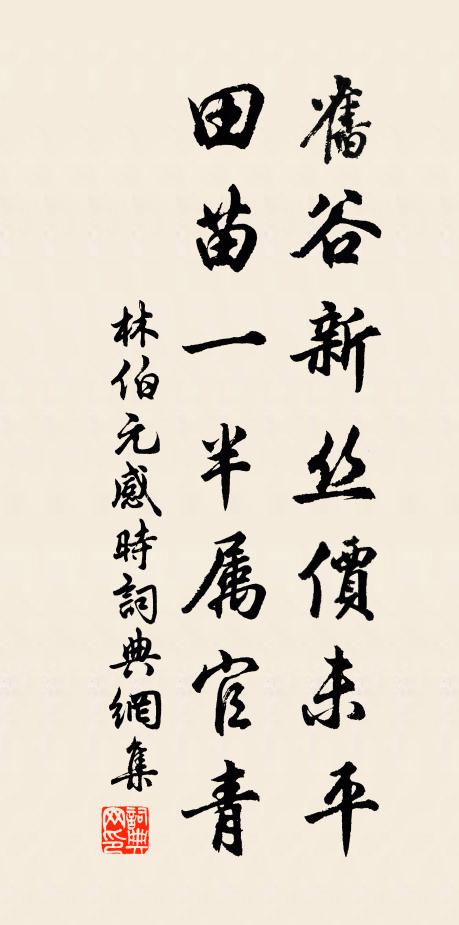 舊谷新丝價未平
田苗一半属官青
林伯元感時詞典網集
詞典網印